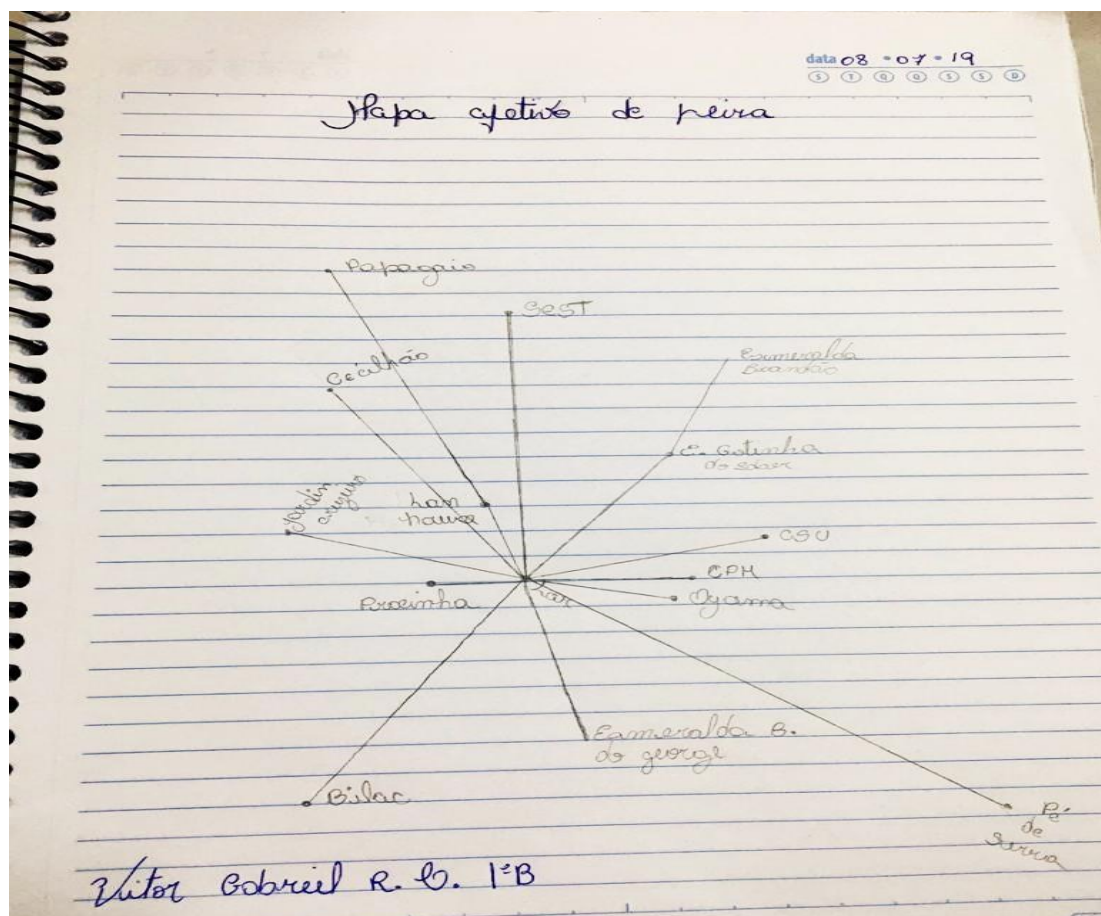 data 08 • 07 • 19
S T Q Q S S D
Mapa afetivo de feira
Papagaio
SEST
Cecilhão
Esmeralda
Brandão
E. Gotinha
do saber
Jardin
cruzeiro
Lan
house
CSU
CPM
Lar
Oyama
Pracinha
Esmeralda B.
do george
Bilac
Pé
de
Serra
Vitor Gabriel R. C. 1ºB